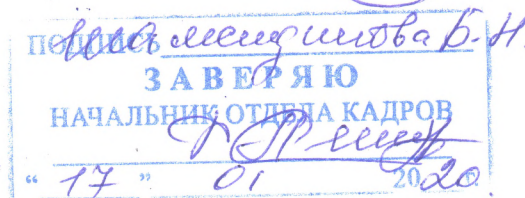 ПОДПИСЬ Б. Н.
ЗАВЕРЯЮ
НАЧАЛЬНИК ОТДЕЛА КАДРОВ
“ 17 ” 01 2020 г.